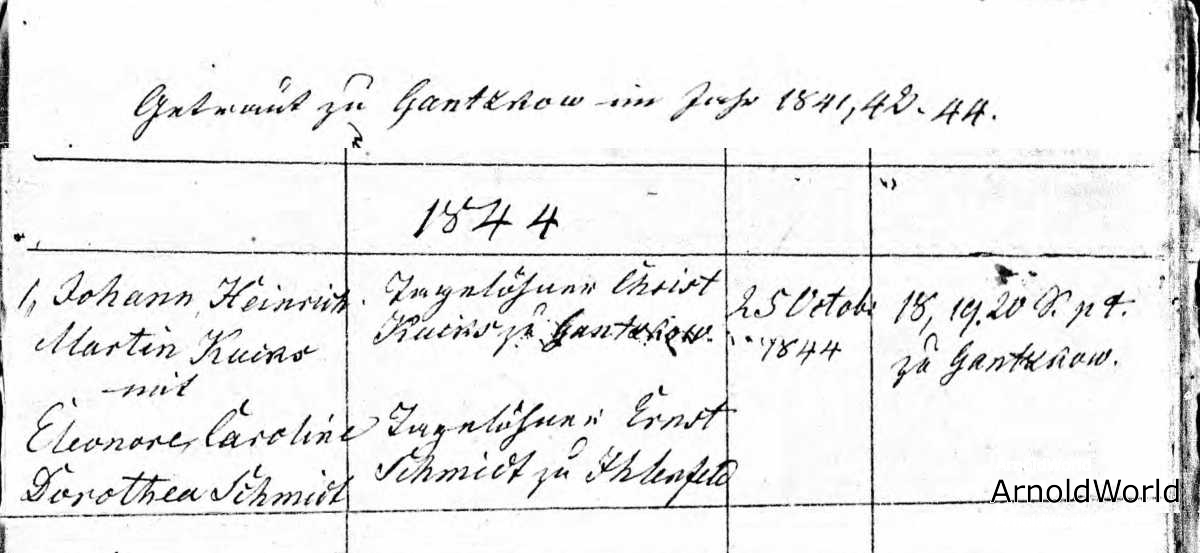 Getraut zu Gantzkow im Jahr 1841, 42-44.
1844
1, Johann, Heinrich
Martin Kucks
mit
Eleonore, Caroline
Dorothea Schmidt
Tagelöhner Christ
Kucks zu Gantzkow.
Tagelöhner Ernst
Schmidt zu Ihlenfeld
25 Octobr
1844
18, 19, 20 S. p t.
zu Gantzkow.
ArnoldWorld